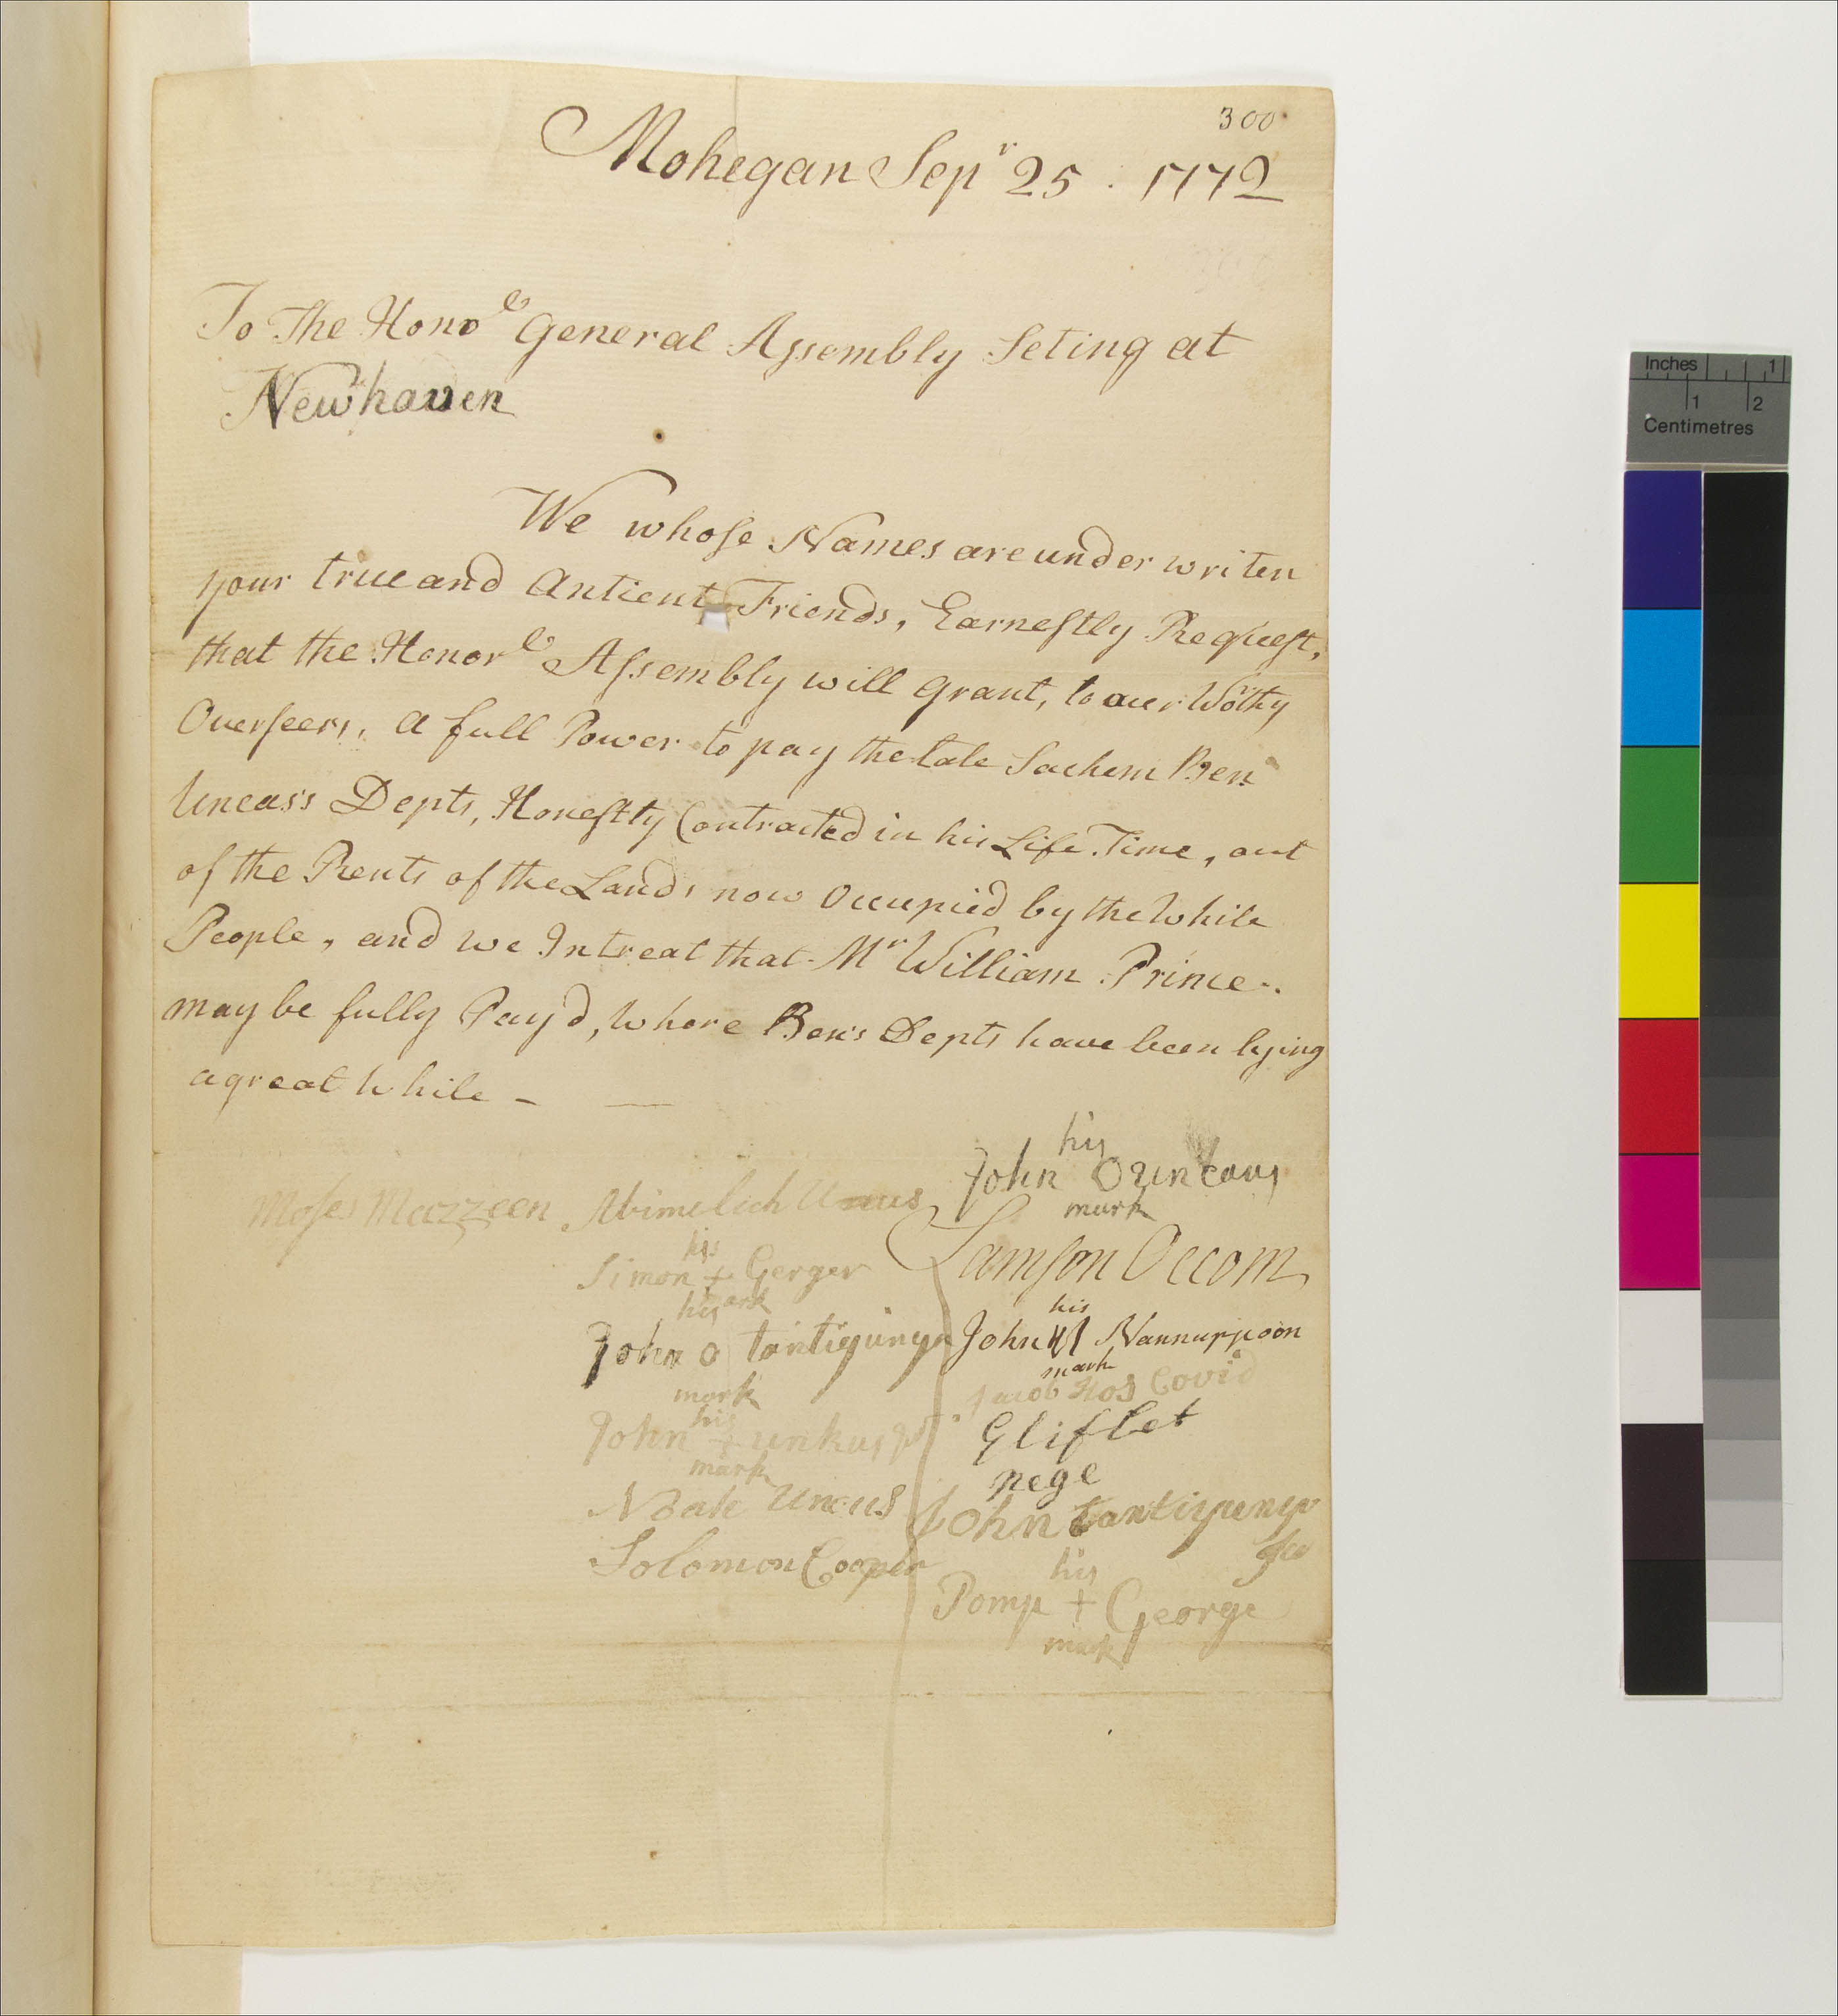 300
Mohegan Sepr 25 . 1772
To The Honole General Assembly Seting at
Newhaven
We whose Names are under writen
your true and Antient Friends, Earnestly Request,
that the Honorle Assembly will grant, to our Worthy
Overseers, a full Power to pay the late Sachem Ben
Uncas's Depts, Honestly Contracted in his Life Time, out
of the Rents of the Lands now Occupied by the White
People, and we Intreat that Mr William Prince
may be fully Pay'd, where Ben's Depts have been lying
a great While -
his
John O
mark
Moses Mazzeen
Abimelich Uncus
Samson Occom
his
Simon + Gerger
mark
his
John o tantiquinga
mark
his
John Nannuppoon
mark
Jacob Hos Covid
his
John +
mark
Gliflet
nege
Noah Uncus
John tantiquenga
Solomon Cooper
his
Pomp + George
mark
Inches 1
1 2
Centimetres